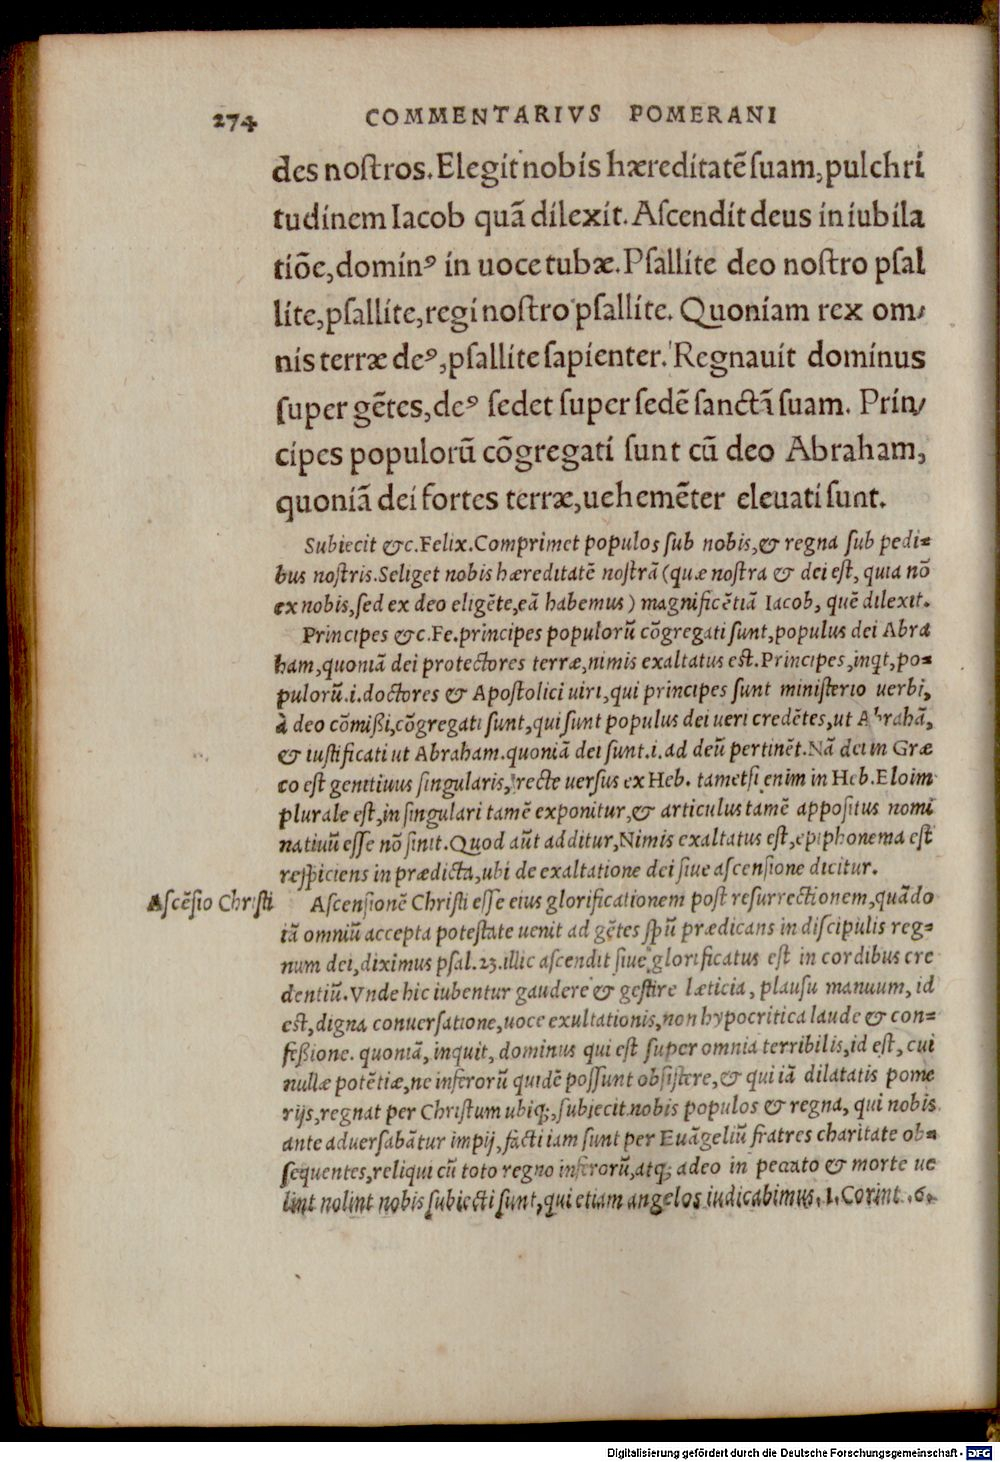 274 COMMENTARIVS POMERANI
des noſtros. Elegit nobis hæreditatẽ ſuam, pulchri
tudinem Iacob quã dilexit. Aſcendit deus in iubila
tiõe, dominꝰ in uoce tubæ. Pſallite deo noſtro pſal
lite, pſallite, regi noſtro pſallite. Quoniam rex om⸗
nis terræ deꝰ, pſallite ſapienter. Regnauit dominus
ſuper gẽtes, deꝰ ſedet ſuper ſedẽ ſanctã ſuam. Prin⸗
cipes populorũ cõgregati ſunt cũ deo Abraham,
quoniã dei fortes terræ, uehemẽter eleuati ſunt.
Subiecit &c. Felix. Comprimet populos ſub nobis, & regna ſub pedi⸗
bus noſtris. Seliget nobis hæreditatẽ noſtrã (quæ noſtra & dei eſt, quia nõ
ex nobis, ſed ex deo eligẽte, eã habemus) magnificẽtiã Iacob, quẽ dilexit.
Principes &c. Fe. principes populorũ cõgregati ſunt, populus dei Abra
ham, quoniã dei protectores terræ, nimis exaltatus eſt. Principes, inqt, po⸗
pulorũ .i. doctores & Apoſtolici uiri, qui principes ſunt miniſterio uerbi,
à deo cõmißi, cõgregati ſunt, qui ſunt populus dei ueri credẽtes, ut Abrahã,
& iuſtificati ut Abraham. quoniã dei ſunt .i. ad deũ pertinẽt. Nã dei in Græ
co eſt genitiuus ſingularis, recte uerſus ex Heb. tametſi enim in Heb. Eloim
plurale eſt, in ſingulari tamẽ exponitur, & articulus tamẽ appoſitus nomi
natiuũ eſſe nõ ſinit. Quod aũt additur, Nimis exaltatus eſt, epiphonema eſt
reſpiciens in prædicta, ubi de exaltatione dei ſiue aſcenſione dicitur.
Aſcẽſio Chriſti
Aſcenſionẽ Chriſti eſſe eius glorificationem poſt reſurrectionem, quãdo
iã omniũ accepta poteſtate uenit ad gẽtes ſpũ prædicans in diſcipulis reg⸗
num dei, diximus pſal. 23. illic aſcendit ſiue glorificatus eſt in cordibus cre
dentiũ. Vnde hic iubentur gaudere & geſtire læticia, plauſu manuum, id
eſt, digna conuerſatione, uoce exultationis, non hypocritica laude & con⸗
feßione. quoniã, inquit, dominus qui eſt ſuper omnia terribilis, id eſt, cui
nullæ potẽtiæ, ne inferorũ quidẽ poſſunt obſiſtere, & qui iã dilatatis pome
rijs, regnat per Chriſtum ubiq;, ſubiecit nobis populos & regna, qui nobis
ante aduerſabãtur impij, facti iam ſunt per Euãgeliũ fratres charitate ob⸗
ſequentes, reliqui cũ toto regno inferorũ, atq; adeo in peccato & morte ue
lint nolint nobis ſubiecti ſunt, qui etiam angelos iudicabimus. 1. Corint. 6.
Digitalisierung gefördert durch die Deutsche Forschungsgemeinschaft - DFG